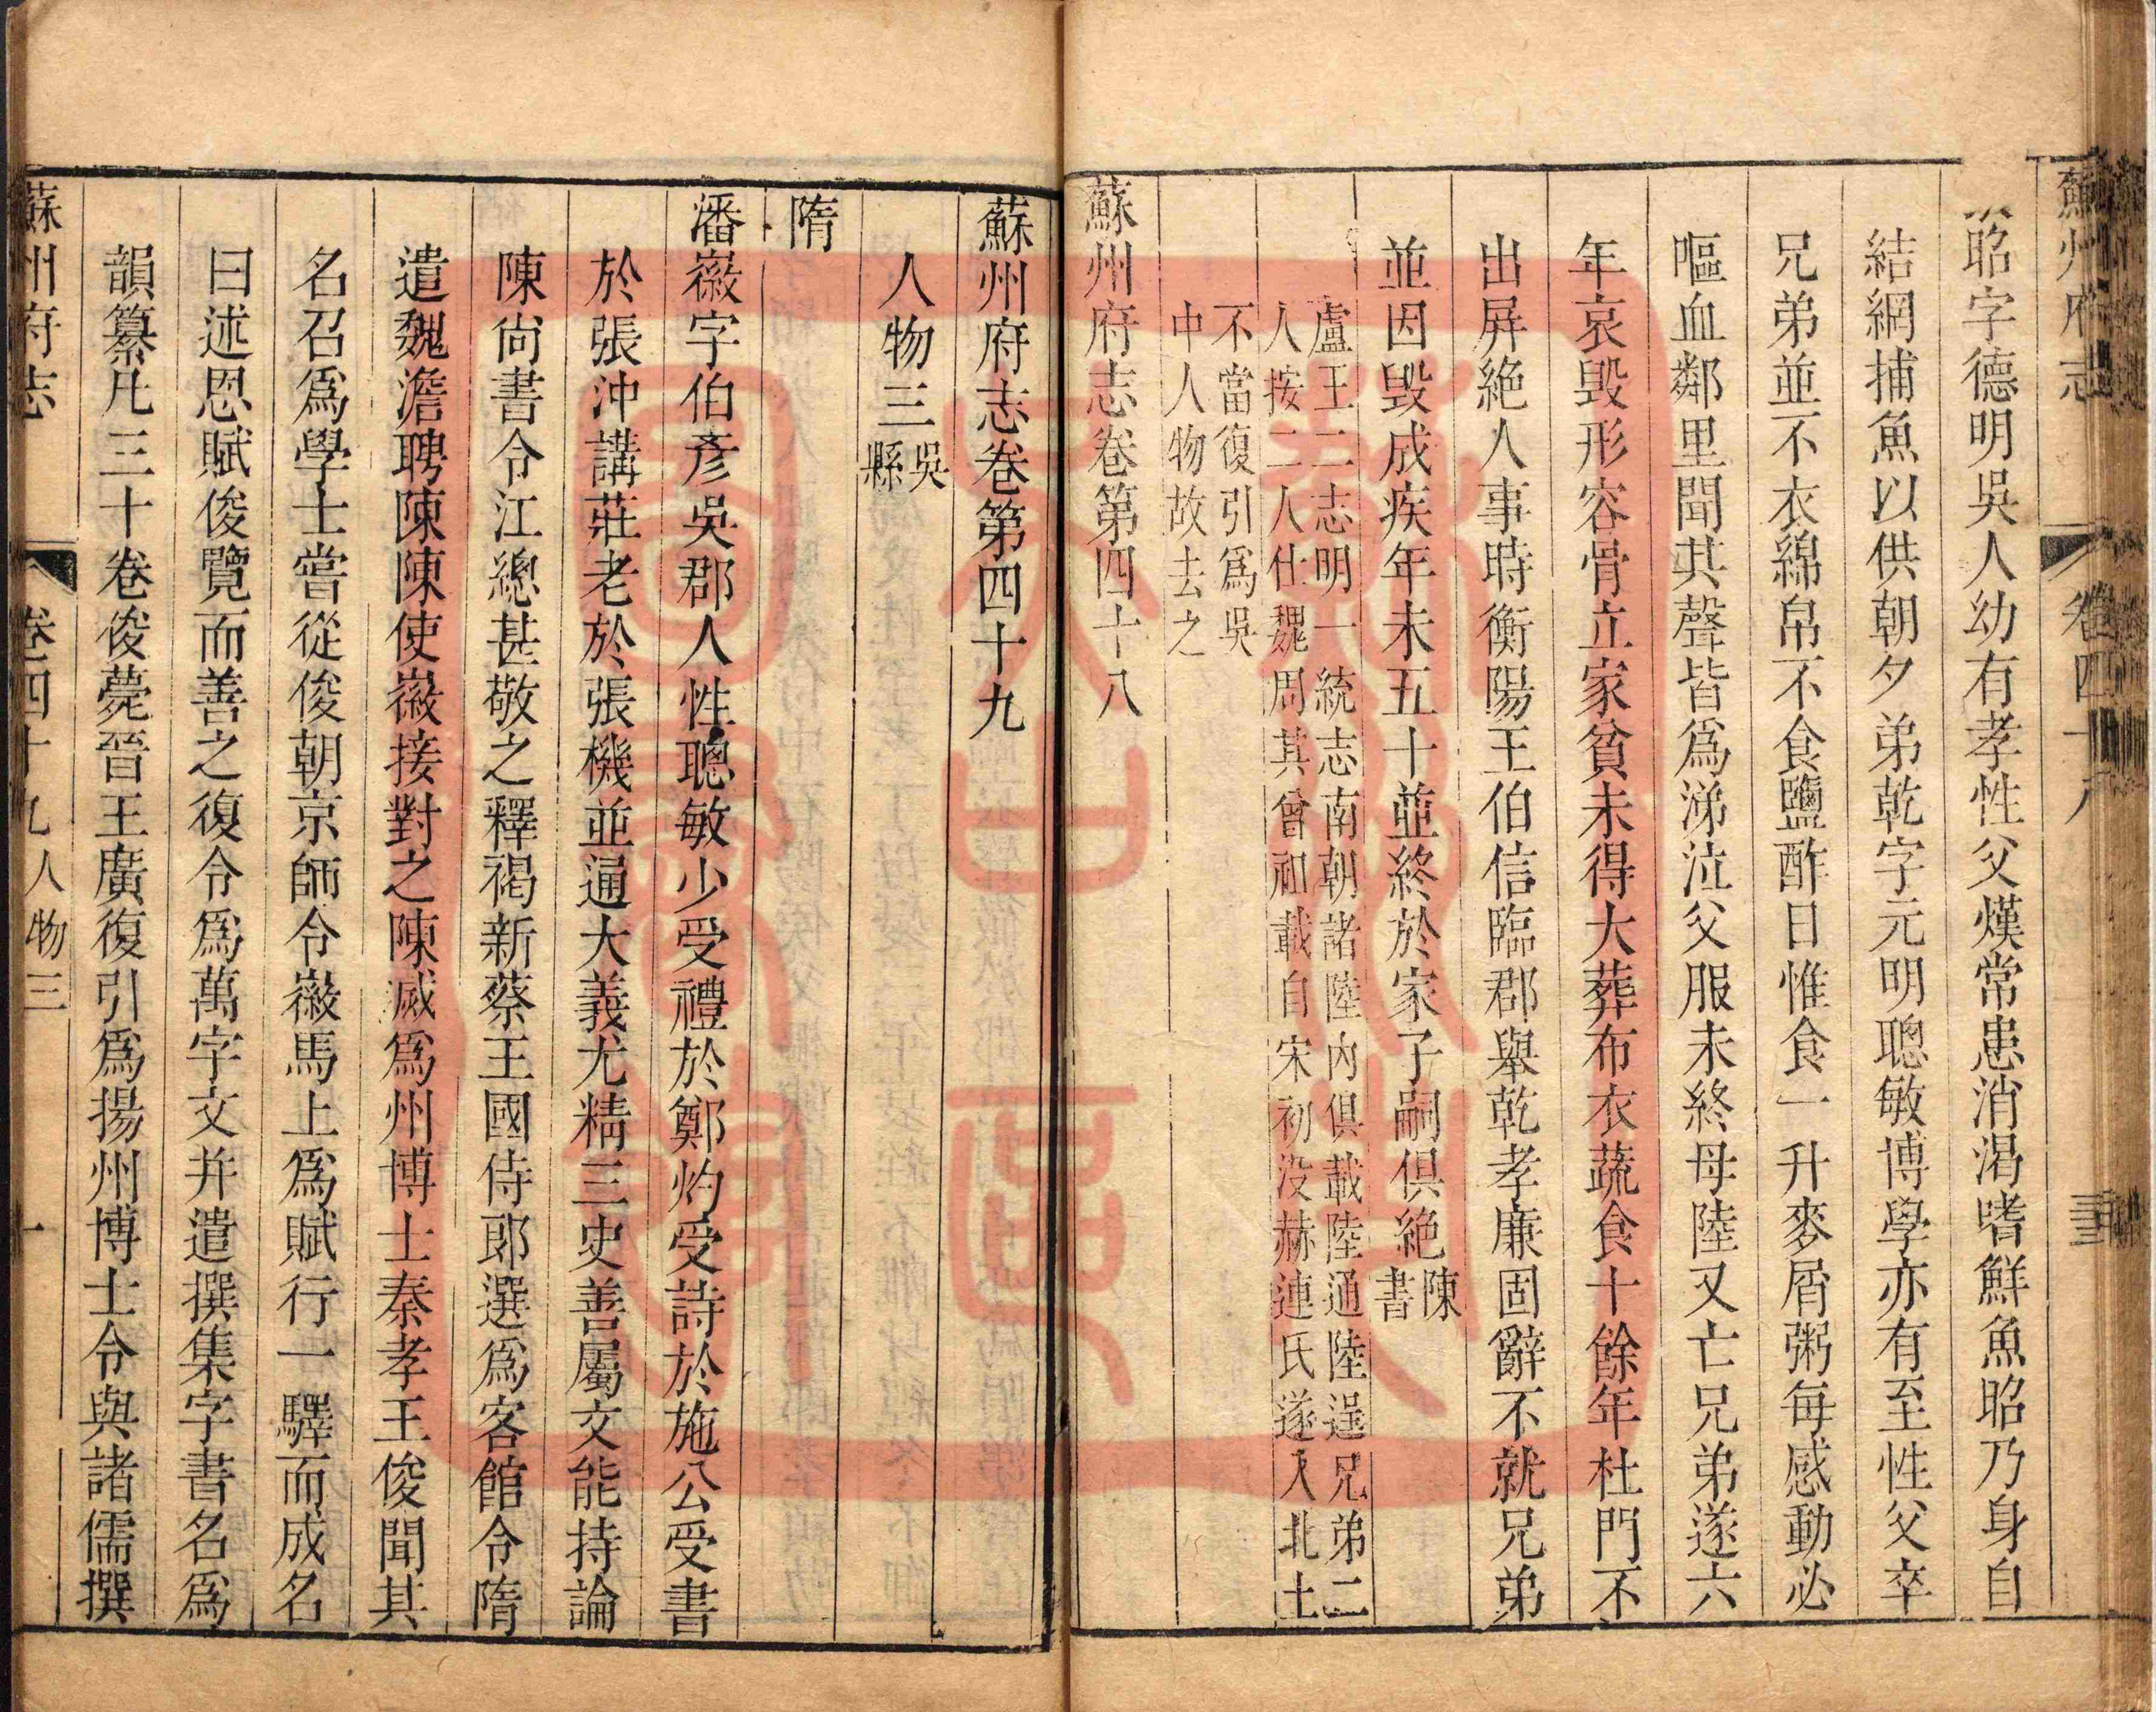 蘇州府志
卷四十八
昭字德明吳人幼有孝性父熯常患消渴嗜鮮魚昭乃身自
結網捕魚以供朝夕弟乾字元明聰敏博學亦有至性父卒
兄弟並不衣綿帛不食鹽酢日惟食一升麥屑粥每感動必
嘔血鄰里聞其聲皆爲涕泣父服未終母陸又亡兄弟遂六
年哀毀形容骨立家貧未得大葬布衣蔬食十餘年杜門不
出屛絶人事時衡陽王伯信臨郡舉乾孝廉固辭不就兄弟
並因毀成疾年未五十並終於家子嗣俱絶陳書
盧王二志明一統志南朝諸陸內俱載陸通陸逞兄弟二
人按二人仕魏周其曾祖載自宋初没赫連氏遂入北土
不當復引爲吳
中人物故去之
蘇州府志卷第四十八
蘇州府志卷第四十九
人物三吳縣
隋
潘徽字伯彥吳郡人性聰敏少受禮於鄭灼受詩於施公受書
於張沖講莊老於張機並通大義尤精三史善屬文能持論
陳尙書令江總甚敬之釋褐新蔡王國侍郎選爲客館令隋
遣魏澹聘陳陳使徽接對之陳滅爲州博士秦孝王俊聞其
名召爲學士嘗從俊朝京師令徽馬上爲賦行一驛而成名
曰述恩賦俊覽而善之復令爲萬字文并遣撰集字書名爲
韻纂凡三十卷俊薨晉王廣復引爲揚州博士令與諸儒撰
蘇州府志
卷四十九人物三
一